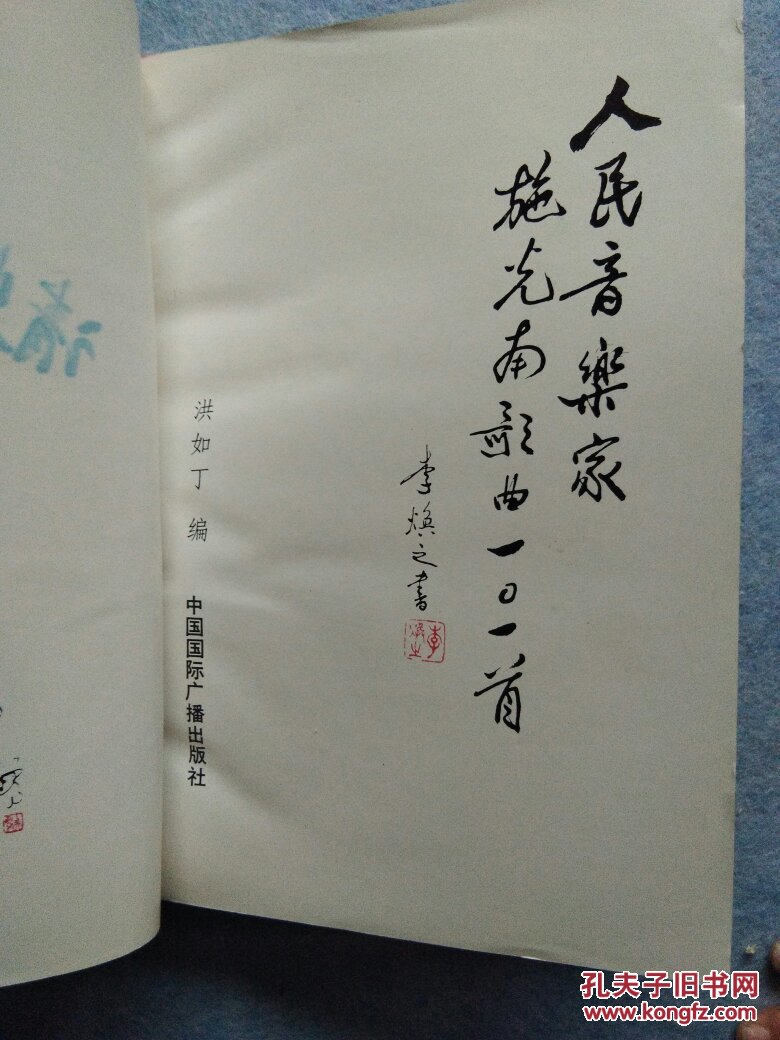 人民音樂家
施光南歌曲一〇一首
李焕之書
洪如丁 编
中国国际广播出版社
孔夫子旧书网
www.kongfz.com